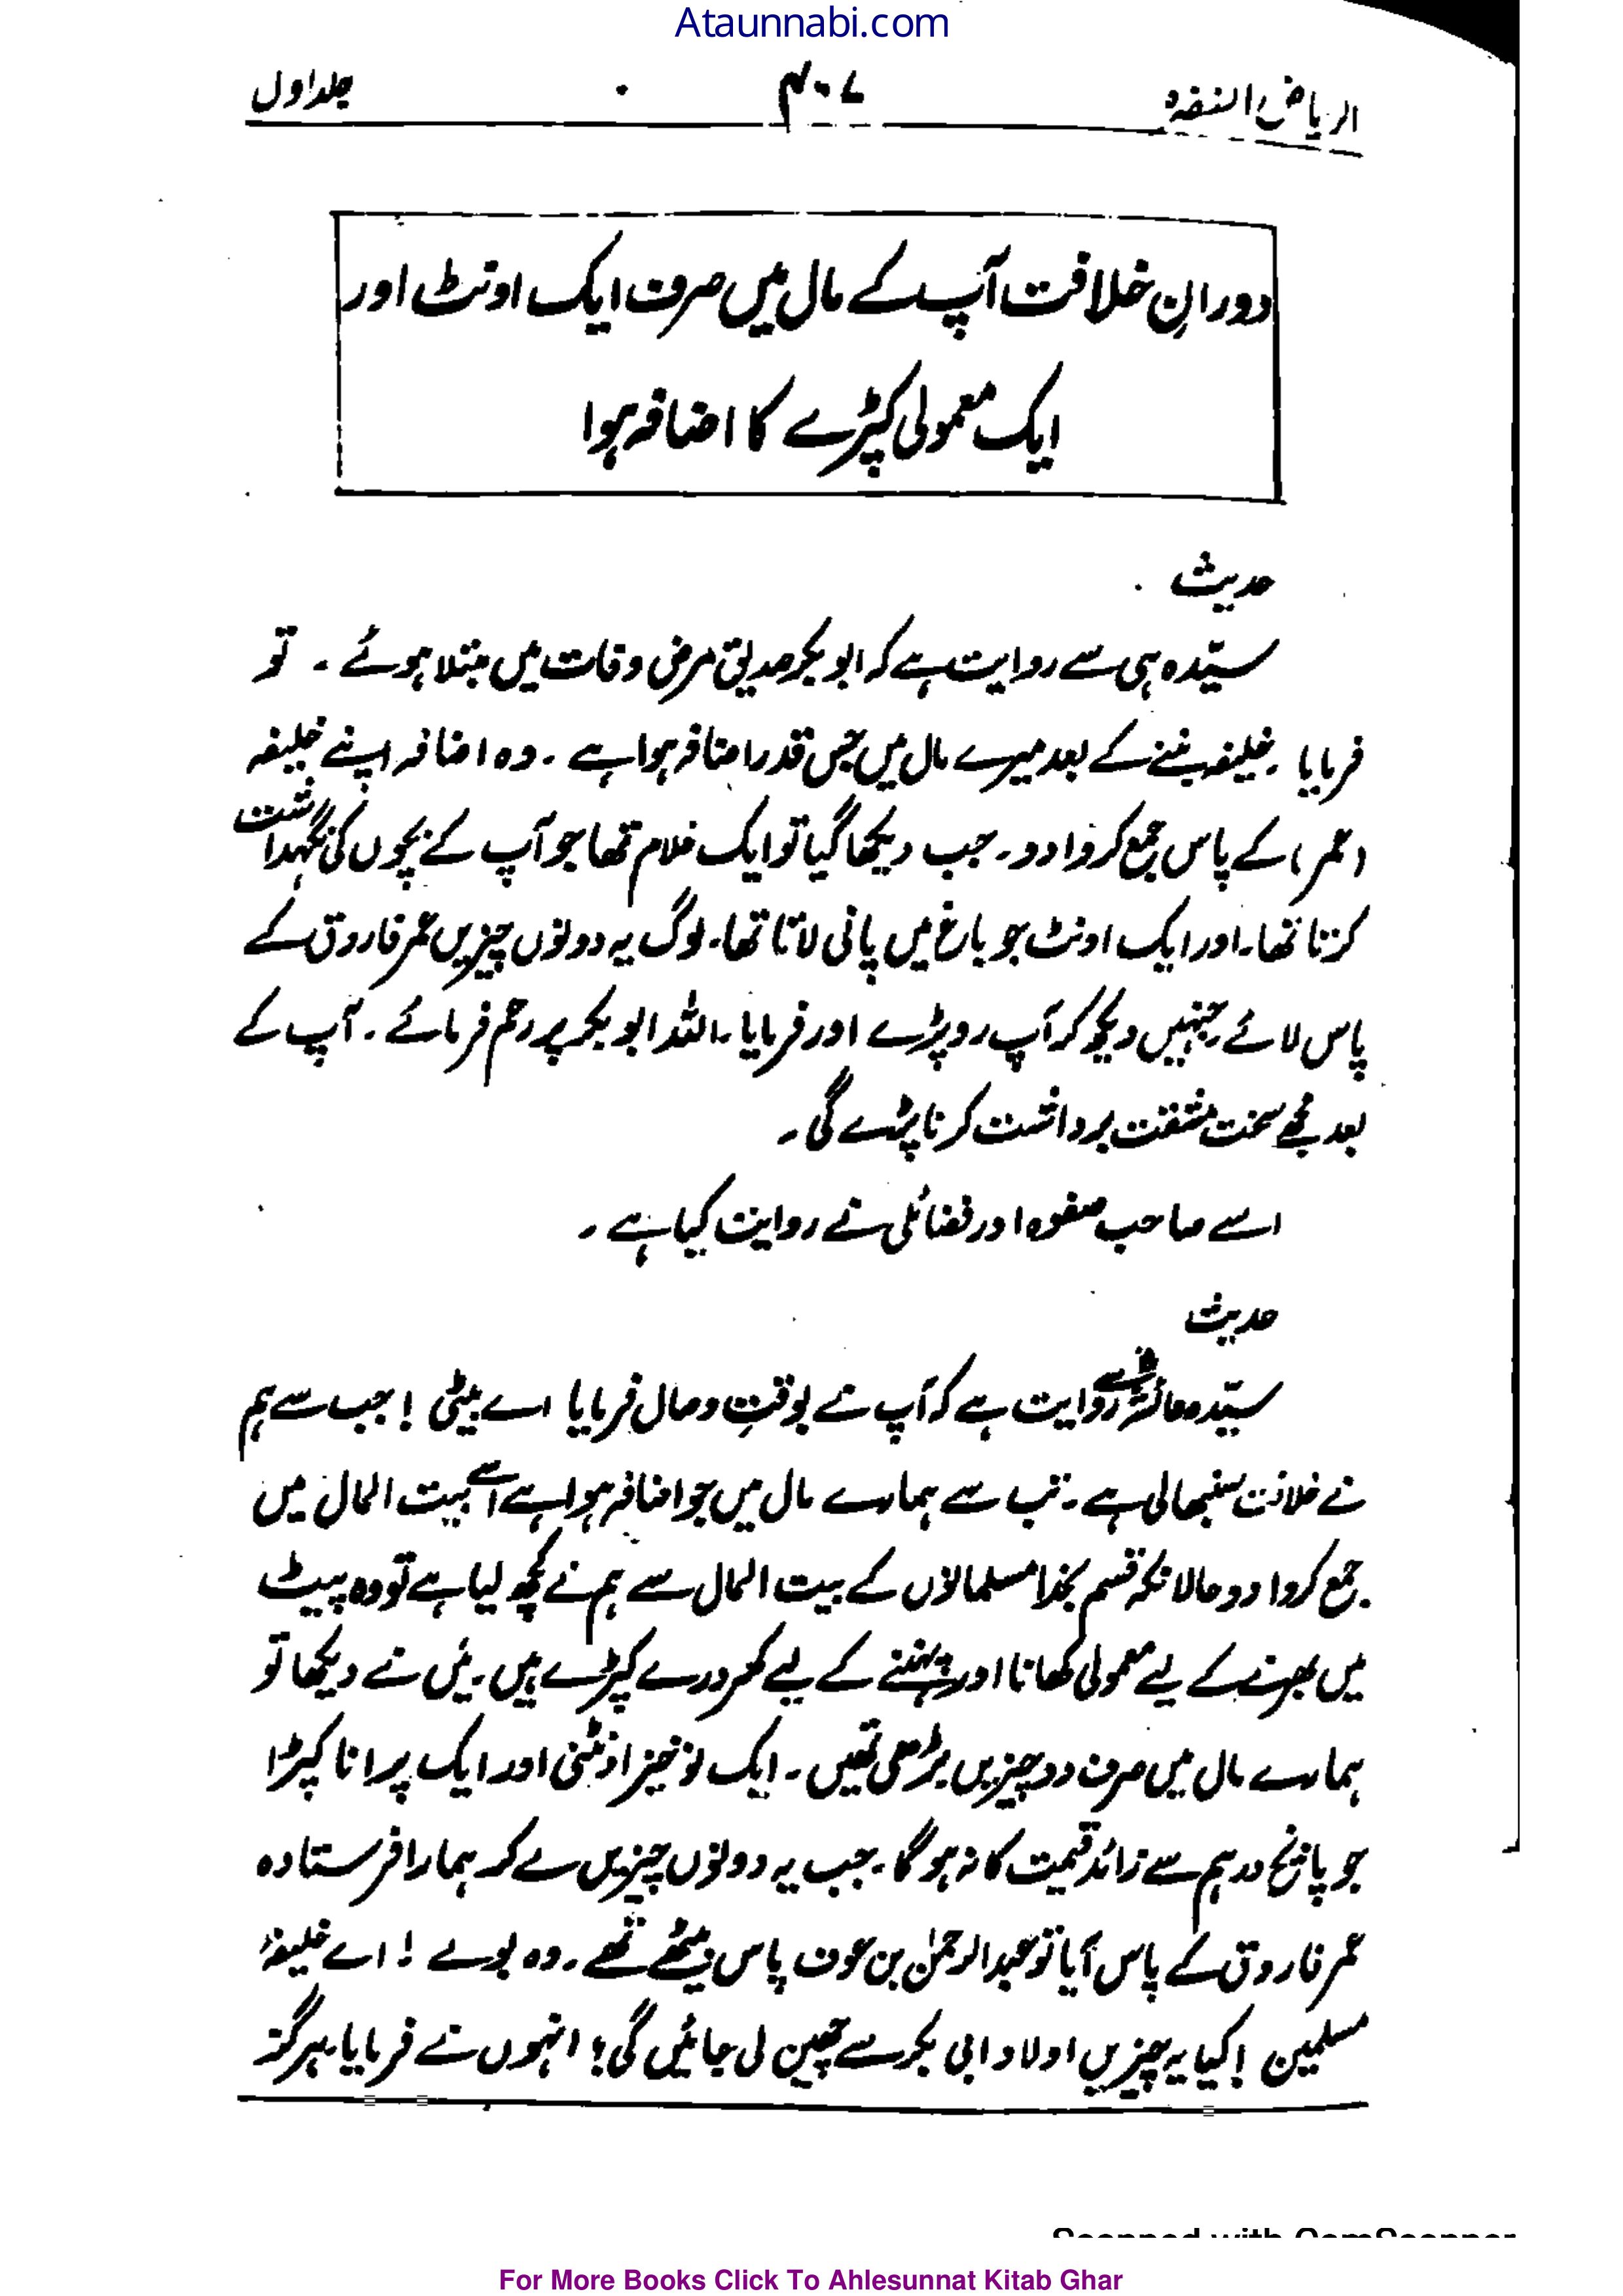 Ataunnabi.com
الریاض النضرہ ۴۰۷ جلد اول
دورانِ خلافت آپ کے مال میں صرف ایک اونٹ اور
ایک معمولی کپڑے کا اضافہ ہوا
حدیث
سیّدہ ہی سے روایت ہے کہ ابو بکر صدیق مرض وفات میں مبتلا ہوئے ۔ تو
فرمایا ۔ خلیفہ بننے کے بعد میرے مال میں جس قدر اضافہ ہوا ہے ۔ وہ اضافہ اپنے خلیفہ
(عمر) کے پاس جمع کروا دو۔ جب دیکھا گیا تو ایک غلام تھا جو آپ کے بچوں کی نگہداشت
کرتا تھا۔ اور ایک اونٹ جو باغ میں پانی لاتا تھا۔ لوگ یہ دونوں چیزیں عمر فاروق کے
پاس لائے۔ جنہیں دیکھ کر آپ رو پڑے اور فرمایا ۔ اللہ ابو بکر پر رحم فرمائے ۔ آپ کے
بعد مجھے سخت مشقت برداشت کرنا پڑے گی ۔
اسے صاحب صفوہ اور فضائلی نے روایت کیا ہے ۔
حدیث
سیّدہ عائشہؓ سے روایت ہے کہ آپ نے بوقتِ وصال فرمایا اے بیٹی ! جب سے ہم
نے خلافت سنبھالی ہے ۔ تب سے ہمارے مال میں جو اضافہ ہوا ہے اسے بیت المال میں
جمع کروا دو حالانکہ قسم بخدا مسلمانوں کے بیت المال سے ہم نے کچھ لیا ہے تو وہ پیٹ
میں بھرنے کے لیے معمولی کھانا اور پہننے کے لیے کھردرے کپڑے ہیں ۔ میں نے دیکھا تو
ہمارے مال میں صرف دو چیزیں بڑھی تھیں ۔ ایک نوخیز اونٹنی اور ایک پرانا کپڑا
جو پانچ درہم سے زائد قیمت کا نہ ہو گا ۔ جب یہ دونوں چیزیں لے کر ہمارا فرستادہ
عمر فاروق کے پاس آیا تو عبدالرحمٰن بن عوف پاس بیٹھے تھے ۔ وہ بولے ! اے خلیفۂ
مسلمین ! کیا یہ چیزیں اولاد ابی بکر سے چھین لی جائیں گی؟ انہوں نے فرمایا۔ ہرگز
Scanned with CamScanner
For More Books Click To Ahlesunnat Kitab Ghar